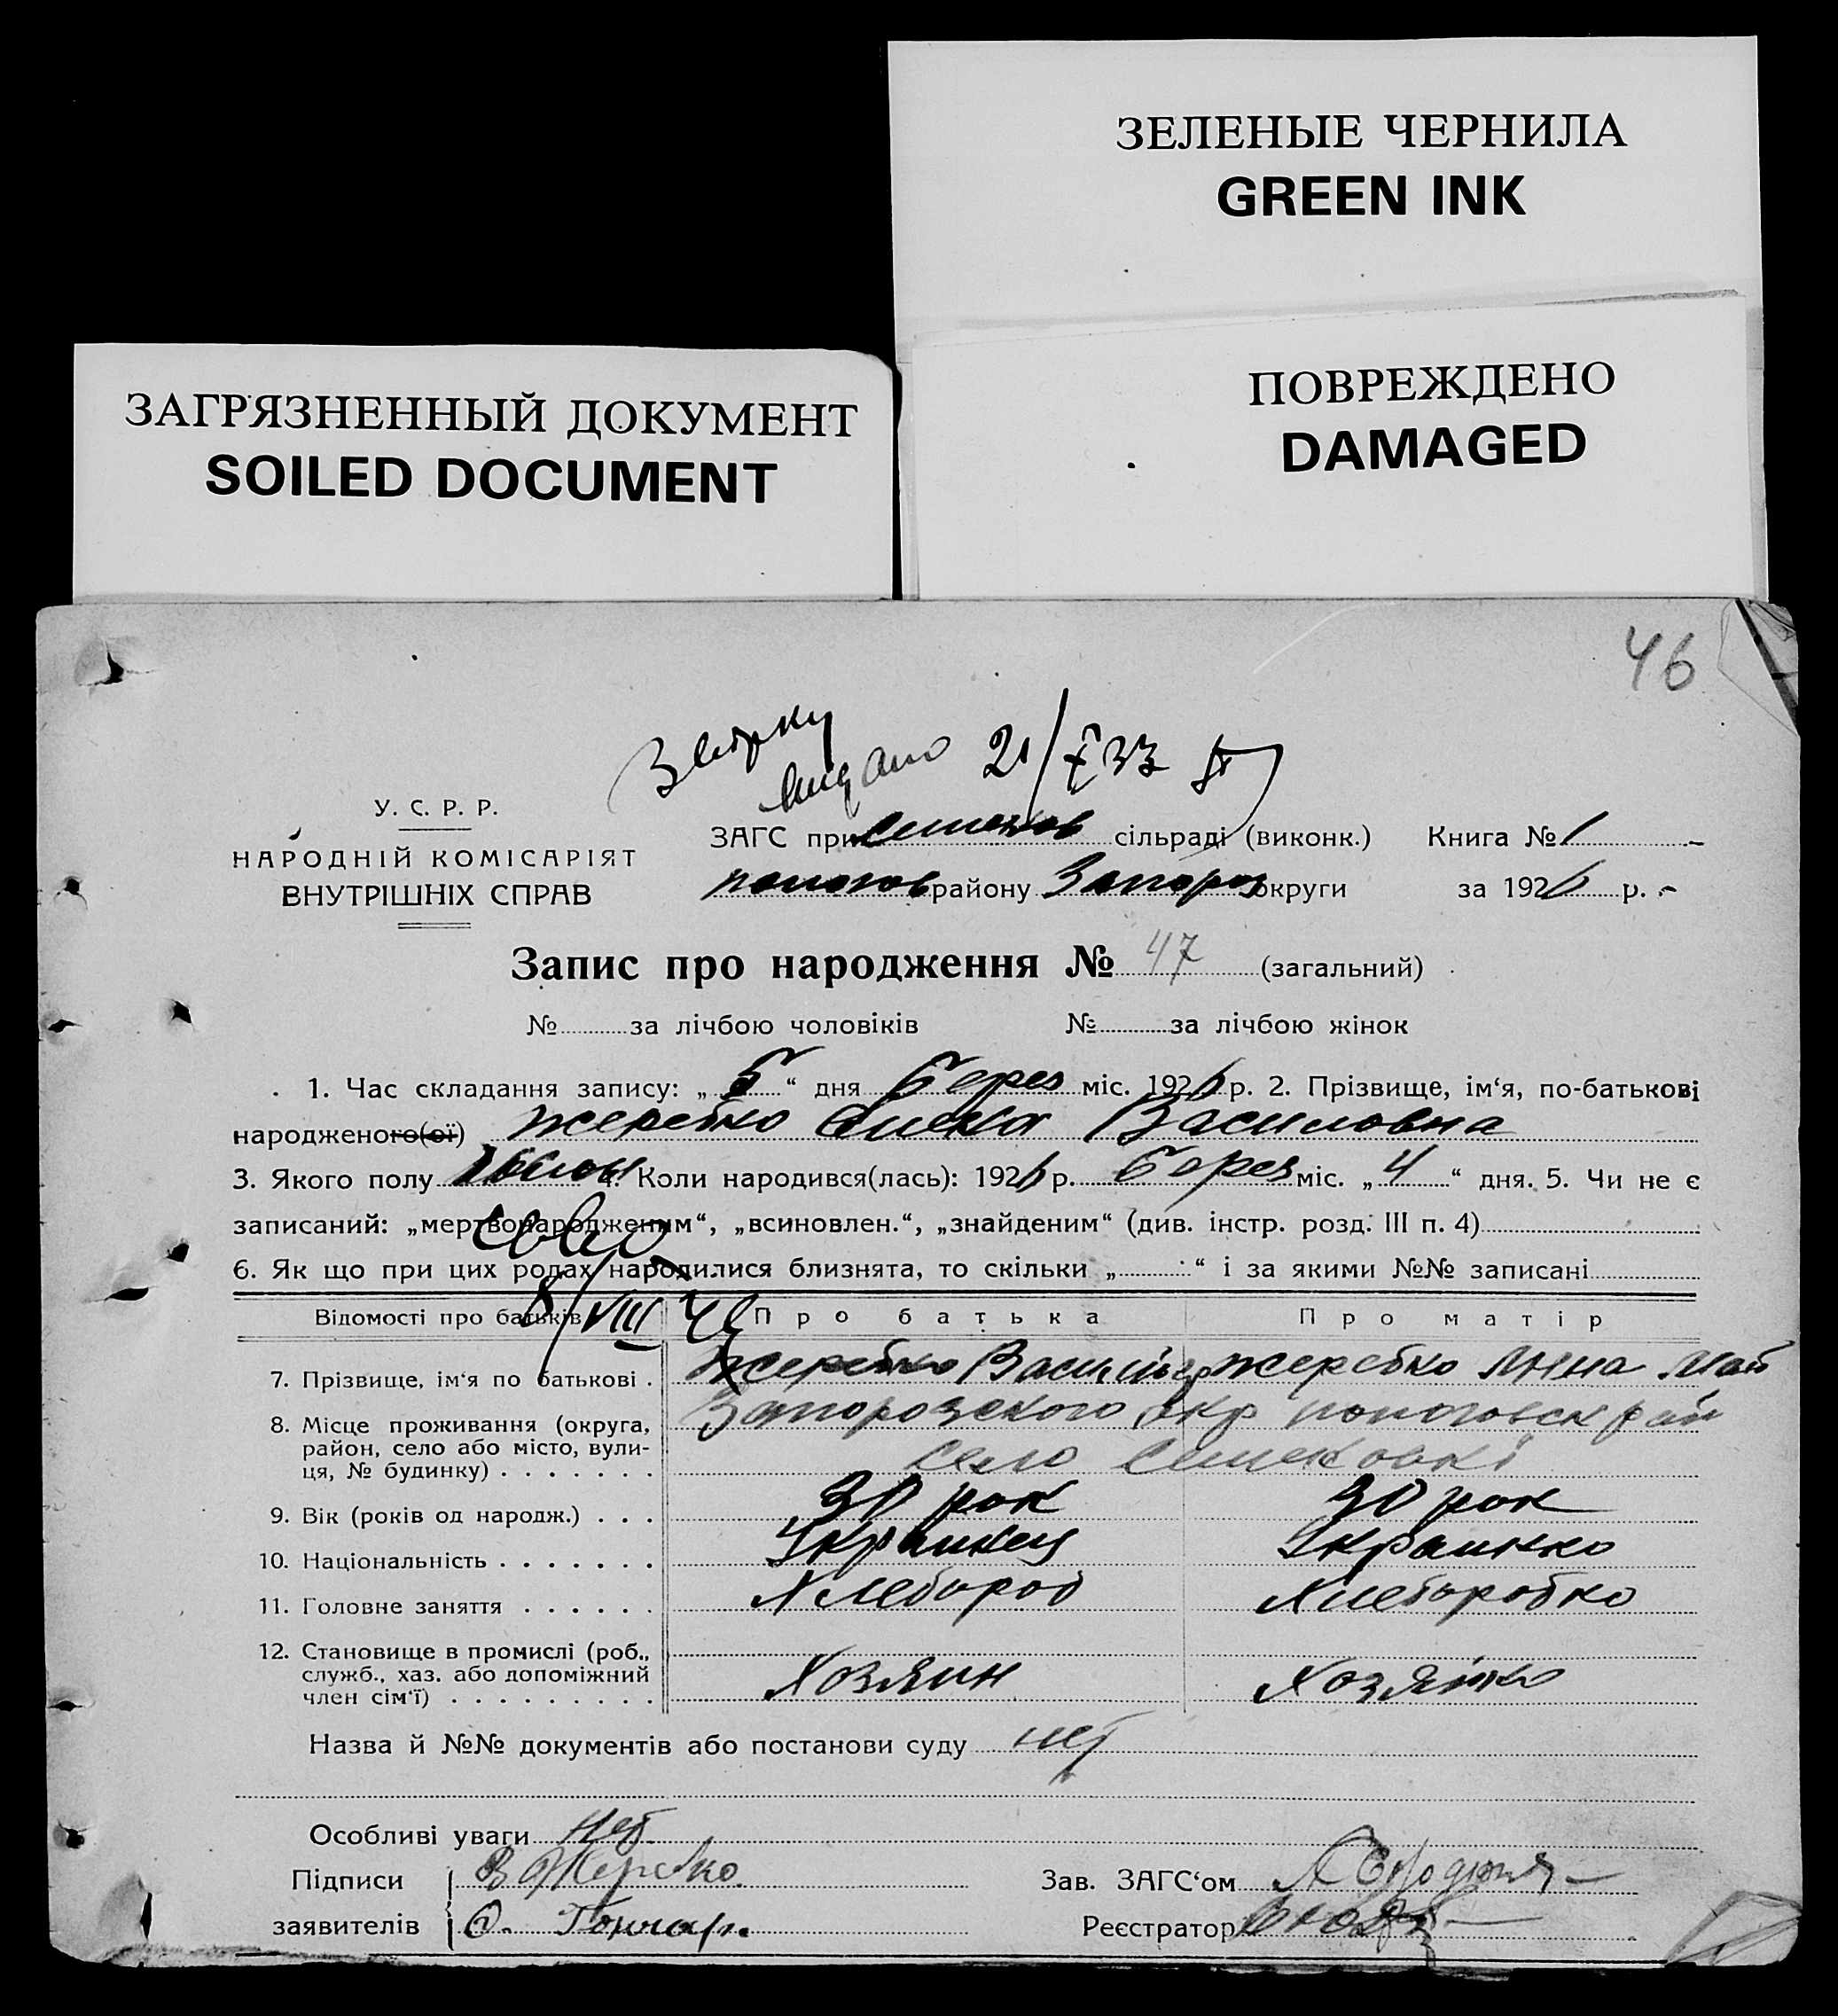 ЗЕЛЕНЫЕ ЧЕРНИЛА
GREEN INK
ПОВРЕЖДЕНО
DAMAGED
ЗАГРЯЗНЕННЫЙ ДОКУМЕНТ
SOILED DOCUMENT
46
видано 21/X 33
У. С. Р. Р.
НАРОДНІЙ КОМІСАРІЯТ
ВНУТРІШНІХ СПРАВ
ЗАГС при сільраді (виконк.) Книга № 1
пологов району Запороз округи за 1926 р.
Запис про народження № 47 (загальний)
№ за лічбою чоловіків № за лічбою жінок
1. Час складання запису: „5“ дня берез міс. 1926 р. 2. Прізвище, ім‘я, по-батькові
народженого(ої) Жеребко Василовна
3. Якого полу 4. Коли народився(лась): 1926 р. берез міс. „4“ дня. 5. Чи не є
записаний: „мертвонародженим“, „всиновлен.“, „знайденим“ (див. інстр. розд. III п. 4)
6. Як що при цих родах народилися близнята, то скільки „ “ і за якими №№ записані
8/VIII
Відомості про батьків Про батька Про матір
7. Прізвище, ім‘я по батькові . Жеребко Василь Жеребко Анна
8. Місце проживання (округа, район, село або місто, вулиця, № будинку) . . . . . . . Запорозского окр пологовск рай
село
9. Вік (років од народж.) . . . 30 рок 30 рок
10. Національність . . . . . . . Украинец Украинко
11. Головне заняття . . . . . . Хлебороб Хлеборобко
12. Становище в промислі (роб., служб., хаз. або допоміжний член сім‘ї) . . . . . . . . . Хозяин Хозяйко
Назва й №№ документів або постанови суду нет
Особливі уваги нет
Підписи В Жеребко Зав. ЗАГС‘ом
заявителів Гончар. Реєстратор